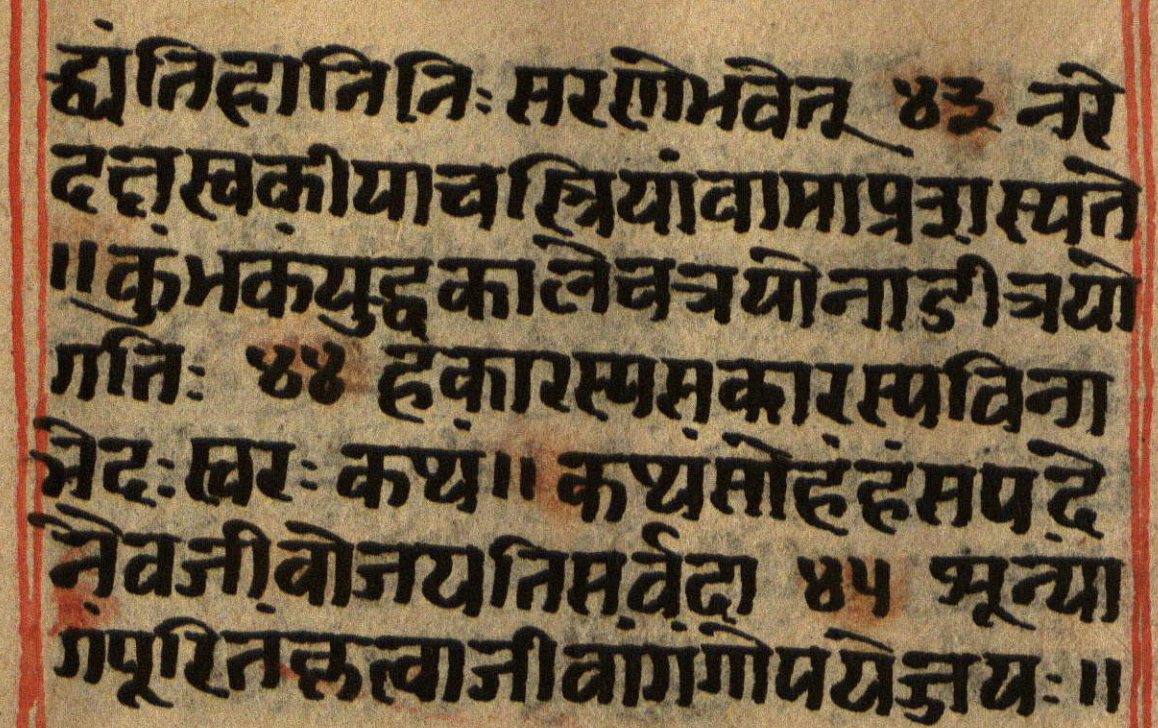 द्यांतिहानित्रिः सरणेभवेत् ४३ नरे
दत्तास्वकीयाचस्त्रियांवामाप्रशस्यते
॥कुंभकंयुद्धकालेचत्रयोनाडीत्रयो
गतिः ४४ हकारस्यसकारस्यविना
भेदःस्वरः कथ॥ कथसोहंहंसपदे
नैवजीवोजयतिसर्वदा ४५ भून्या
गपूरितंकृत्वाजीवांगगोपयेज्जयः॥